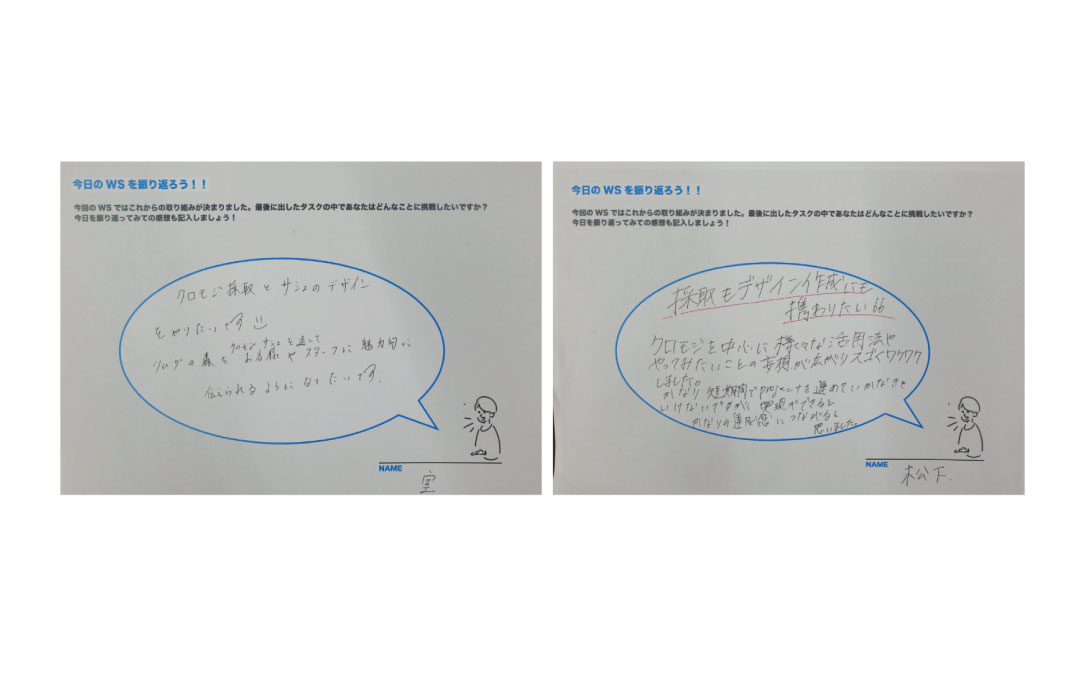 今日の WS を振り返ろう！！
今回の WS ではこれからの取り組みが決まりました。最後に出したタスクの中であなたはどんなことに挑戦したいですか？
今日を振り返ってみての感想も記入しましょう！
クロモジ採取とサシェのデザイン
をやりたいです
クロモジサシェを通して
の森をお客様やスタッフに魅力的に
伝えられるようになりたいです。
NAME
室
今日の WS を振り返ろう！！
今回の WS ではこれからの取り組みが決まりました。最後に出したタスクの中であなたはどんなことに挑戦したいですか？
今日を振り返ってみての感想も記入しましょう！
採取もデザイン作成にも
携わりたい
クロモジを中心に様々な活用法や
やってみたいことの妄想が広がりスゴくワクワク
しました。
かなり短期間でprojectを進めていかなきゃ
いけないですが、実現ができると
かなりの達成感につながると
思いました。
NAME
松下.